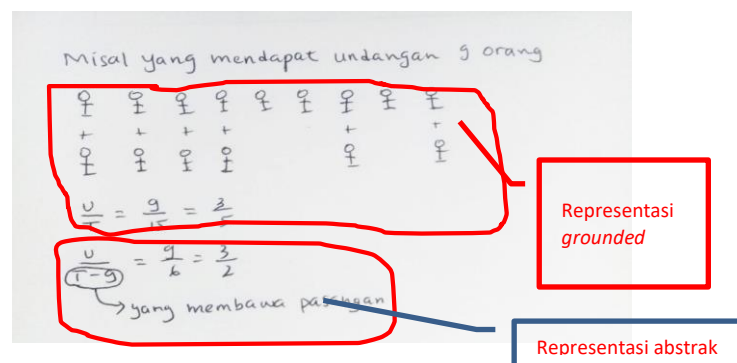 Misal yang mendapat undangan 9 orang
+ + + + + +
U/T = 9/15 = 3/5
U/T-9 = 9/6 = 3/2
yang membawa pasangan
Representasi
grounded
Representasi abstrak